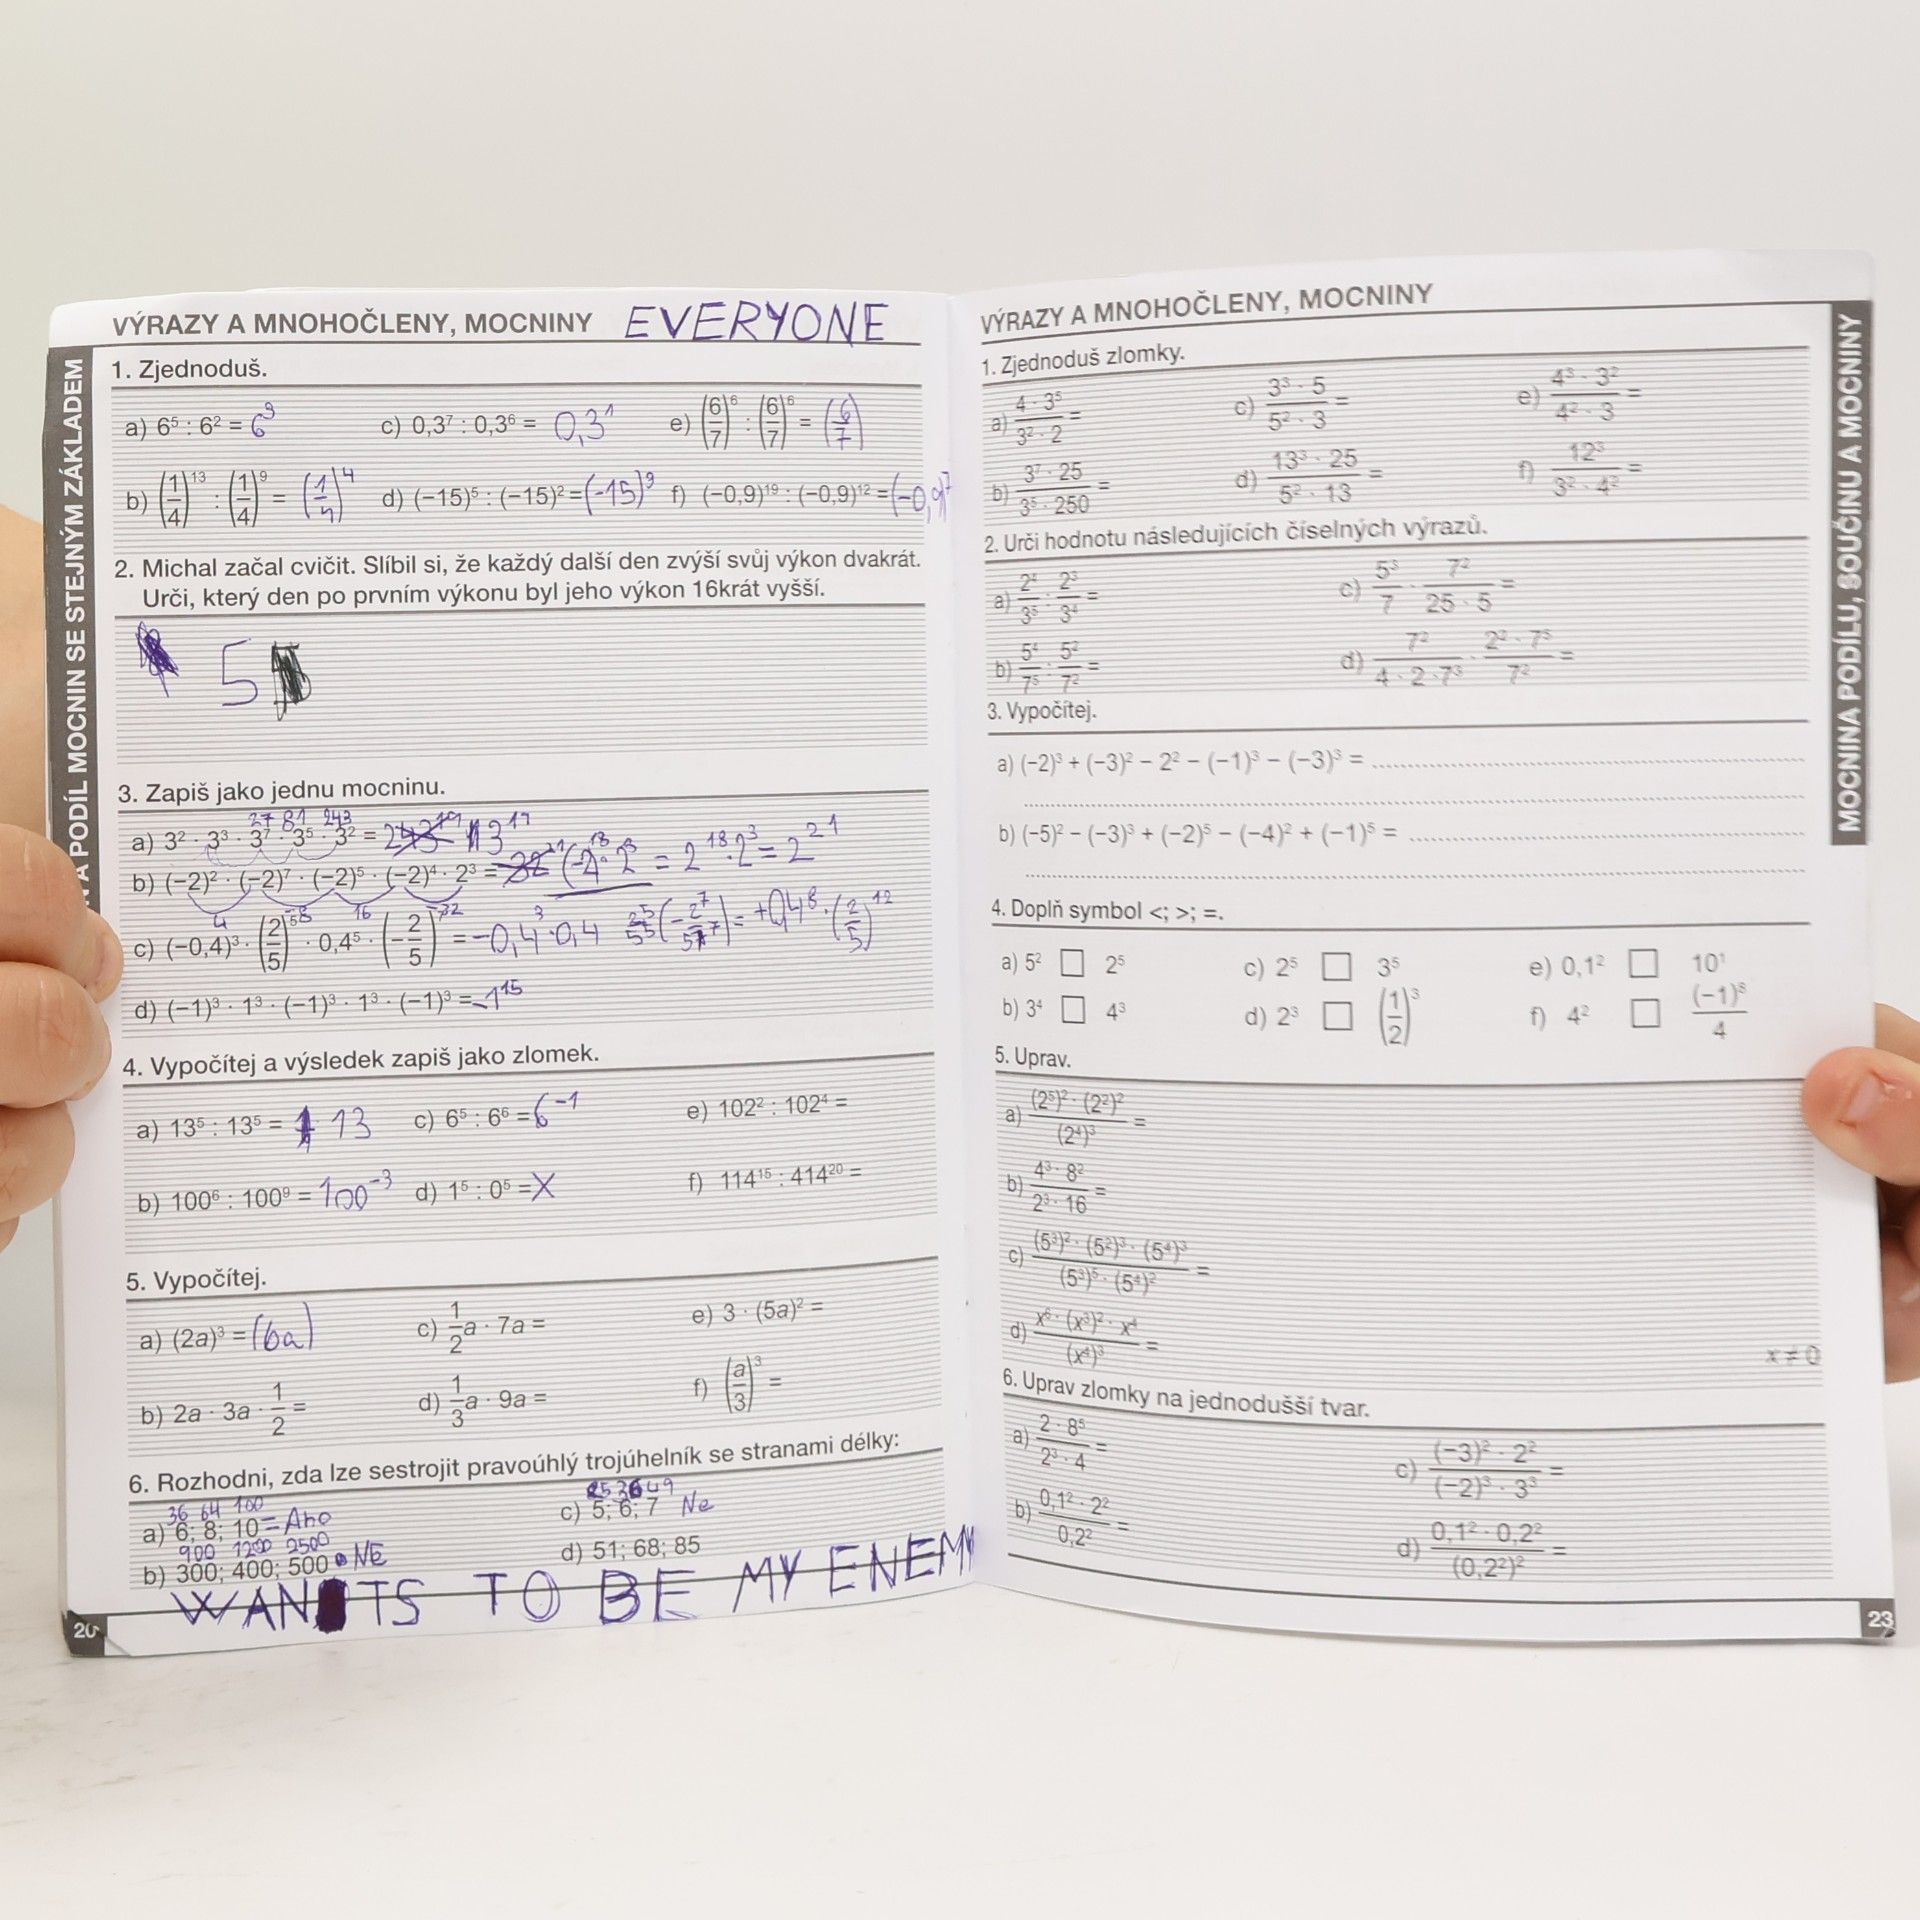 VÝRAZY A MNOHOČLENY, MOCNINY EVERYONE
A PODÍL MOCNIN SE STEJNÝM ZÁKLADEM
1. Zjednoduš.
a) 6⁵ : 6² = 6³ c) 0,3⁷ : 0,3⁶ = 0,3¹ e) (6/7)⁶ : (6/7)⁶ = (6/7)
b) (1/4)¹³ : (1/4)⁹ = (1/4)⁴ d) (−15)⁵ : (−15)² = (-15)³ f) (−0,9)¹⁹ : (−0,9)¹² = (-0,9)⁷
2. Michal začal cvičit. Slíbil si, že každý další den zvýší svůj výkon dvakrát.
Urči, který den po prvním výkonu byl jeho výkon 16krát vyšší.
5
3. Zapiš jako jednu mocninu.
27 81 243
a) 3² · 3³ · 3⁷ · 3⁵ · 3² = 3¹⁹
b) (−2)² · (−2)⁷ · (−2)⁵ · (−2)⁴ · 2³ = (-2)¹⁸ · 2³ = 2¹⁸ · 2³ = 2²¹
4 8 16 32
c) (−0,4)³ · (2/5)⁵ · 0,4⁵ · (−2/5)⁷ = -0,4³ · 0,4 = +0,4⁸ · (2/5)¹²
d) (−1)³ · 1³ · (−1)³ · 1³ · (−1)³ = -1¹⁵
4. Vypočítej a výsledek zapiš jako zlomek.
a) 13⁵ : 13⁵ = 13 c) 6⁵ : 6⁶ = 6⁻¹ e) 102² : 102⁴ =
b) 100⁶ : 100⁹ = 100⁻³ d) 1⁵ : 0⁵ = X f) 114¹⁵ : 414²⁰ =
5. Vypočítej.
a) (2a)³ = (6a) c) 1/2 a · 7a = e) 3 · (5a)² =
b) 2a · 3a · 1/2 = d) 1/3 a · 9a = f) (a/3)³ =
6. Rozhodni, zda lze sestrojit pravoúhlý trojúhelník se stranami délky:
36 64 100 25 36 49
a) 6; 8; 10 = Ano c) 5; 6; 7 Ne
900 1200 2500
b) 300; 400; 500 NE d) 51; 68; 85
WANTS TO BE MY ENEMY
20
VÝRAZY A MNOHOČLENY, MOCNINY
MOCNINA PODÍLU, SOUČINU A MOCNINY
1. Zjednoduš zlomky.
a) 4 · 3⁵ / 3² · 2 = c) 3³ · 5 / 5² · 3 = e) 4³ · 3² / 4² · 3 =
b) 3⁷ · 25 / 3⁵ · 250 = d) 13³ · 25 / 5² · 13 = f) 12³ / 3² · 4² =
2. Urči hodnotu následujících číselných výrazů.
a) 2⁴/3⁵ : 2³/3⁴ = c) 5³/7 · 7²/25 · 5 =
b) 5⁴/7⁵ : 5²/7² = d) 7²/4 · 2 · 7³ · 2² · 7⁵/7² =
3. Vypočítej.
a) (−2)³ + (−3)² − 2² − (−1)³ − (−3)³ =
b) (−5)² − (−3)³ + (−2)⁵ − (−4)² + (−1)⁵ =
4. Doplň symbol <; >; =.
a) 5² □ 2⁵ c) 2⁵ □ 3⁵ e) 0,1² □ 10¹
b) 3⁴ □ 4³ d) 2³ □ (1/2)³ f) 4² □ (−1)⁸/4
5. Uprav.
a) (2⁵)² · (2²)² / (2⁴)³ =
b) 4³ · 8² / 2³ · 16 =
c) (5³)² · (5²)³ · (5⁴)³ / (5³)⁵ · (5⁴)² =
d) x⁶ · (x³)² · x⁴ / (x⁴)³ =
x ≠ 0
6. Uprav zlomky na jednodušší tvar.
a) 2 · 8⁵ / 2³ · 4 = c) (−3)² · 2² / (−2)³ · 3³ =
b) 0,1² · 2² / 0,2² = d) 0,1² · 0,2² / (0,2²)² =
23